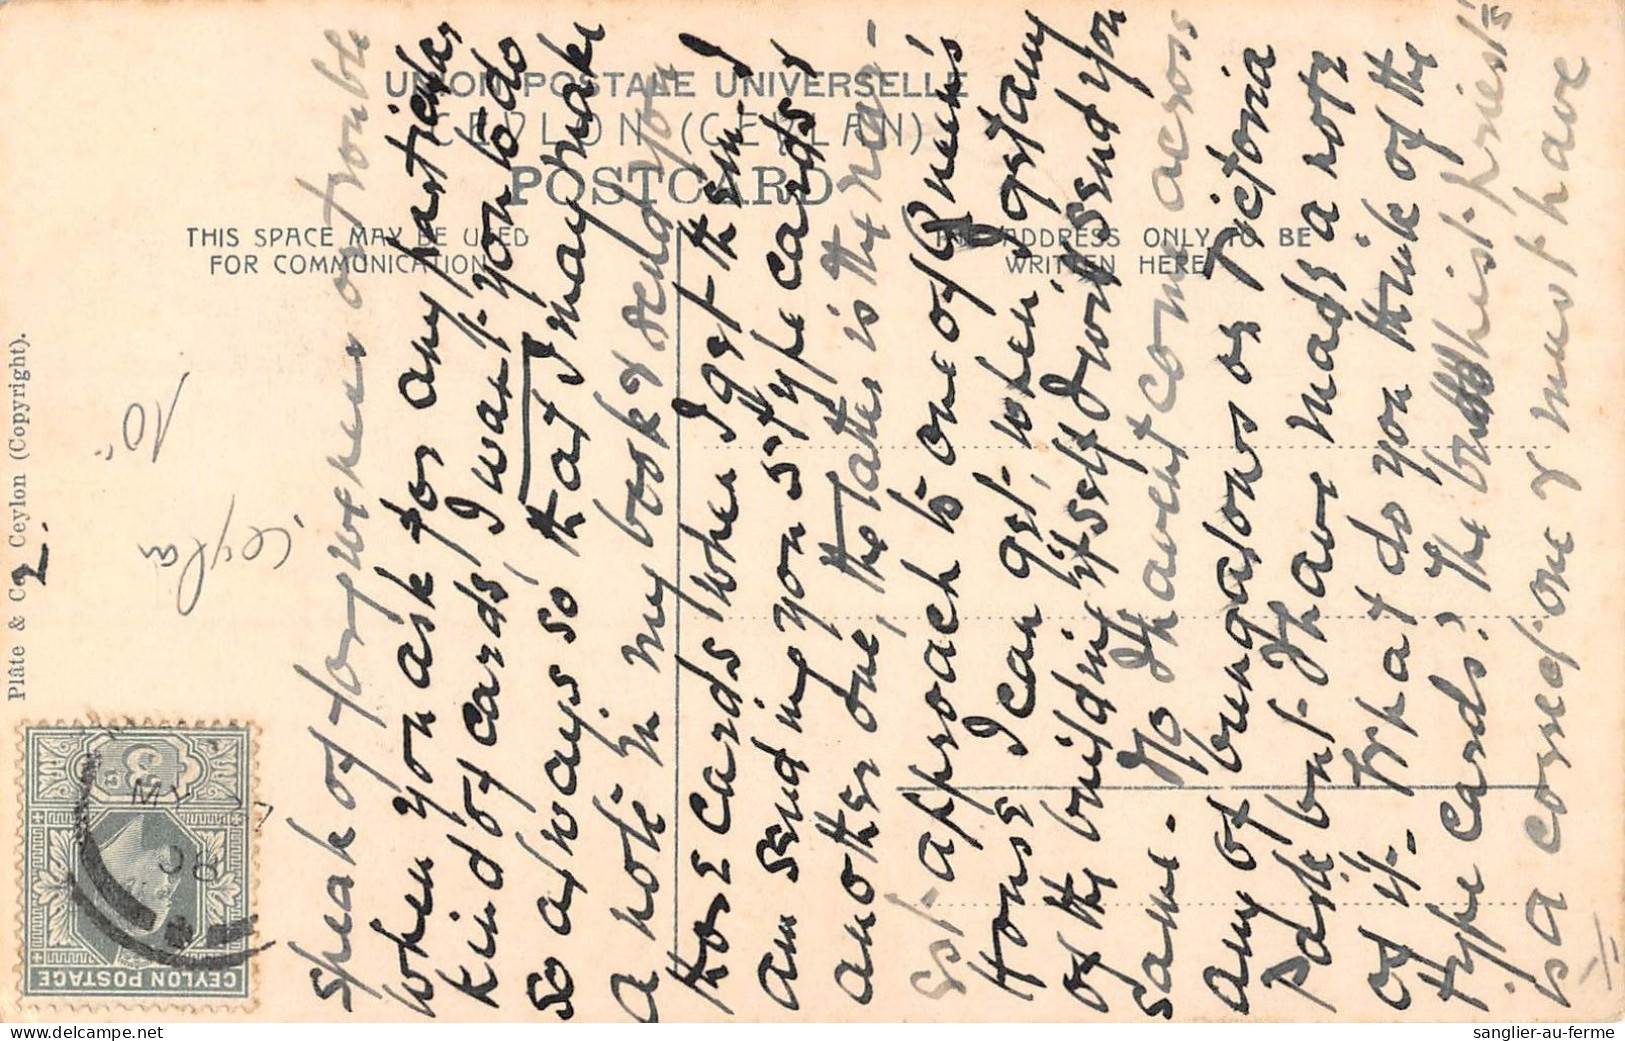 UNION POSTALE UNIVERSELLE
CEYLON (CEYLAN)
POSTCARD
THIS SPACE MAY BE USED
FOR COMMUNICATION
THE ADDRESS ONLY TO BE
WRITTEN HERE
Plâte & Co Ceylon (Copyright).
2.
10
Ceylan
CEYLON POSTAGE
MY
08
speak of for when or trouble
when you ask for any particular
kind of cards, I want you to do
so always so that I may make
a note in my book & send you
those cards when I get them I
am sending you s type cards &
another one, the latter is the near-
est approach to one of Queen's
House I can get, when I get any
of the building itself I will send you
same. No I havent come across
any of bungalows or Victoria
Park but I have made a note
of it. What do you think of the
type cards? The buddhist priests
is a correct one & must have
II